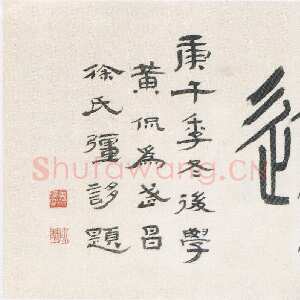 庚午季冬後學
黃侃為武昌
徐氏彊誃題
Shufawang.CN